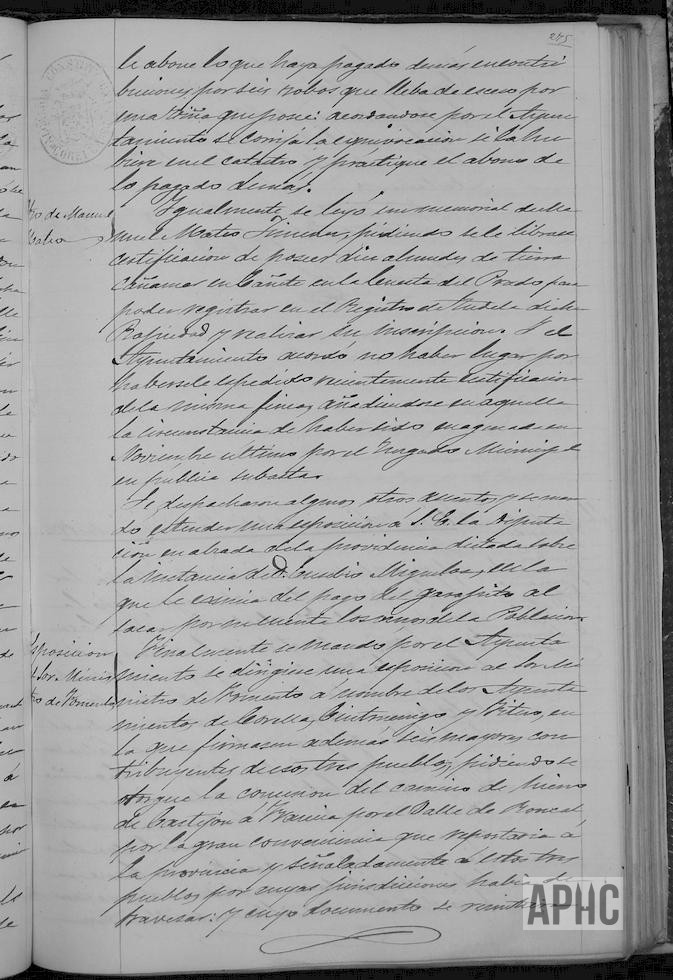 275
le abone lo que haya pagado demás en contri
buciones por seis robos que lleba de exceso por
una Viña que posee: acordandose por el Ayun
tamiento se corrija la equivocacion si la hu
biere en el catastro y practique el abono de
lo pagado demas.
Igualmente se leyó un memorial de Ma
nuel Mateo Jimenez, pidiendo se le librase
certificacion de poseer diez almudes de tierra
cañamar en Cañete en la Cuesta del Prado, para
poder registrar en el Registro de Tudela dicha
Propiedad y realizar su inscripcion. Y el
Ayuntamiento acordó no haber lugar por
habersele espedido recientemente certificacion
de la misma finca, añadiendose en aquella
la circunstancia de haber sido enagenada en
Noviembre ultimo por el Juzgado Municipal
en publica subasta.
Se despacharon algunos otros asuntos y se man
dó estender una esposicion á S. E. la Diputa
cion en alzada de la providencia dictada sobre
la instancia de D. Eusebio Miguel
que le eximia del pago del garapito al
sacar por su cuenta los vinos de la Poblacion.
Finalmente se mandó por el Ayunta
miento se dirigiese una esposicion al Sor. Mi
nistro de Fomento á nombre de los Ayunta
mientos de Corella, Cintruenigo y Fitero, en
la que firmasen además seis mayores con
tribuyentes de esos tres pueblos, pidiendo se
otorgue la concesion del camino de hierro
de Castejon á Francia por el Valle de Roncal
por la gran conveniencia que reportaria á
la provincia y señaladamente á estos tres
pueblos por cuyas jurisdicciones habia de
travesar: y cuyo documento se remitiera
de Manuel
Mateo
Esposicion
al Sor. Minis
tro de Fomento
APHC